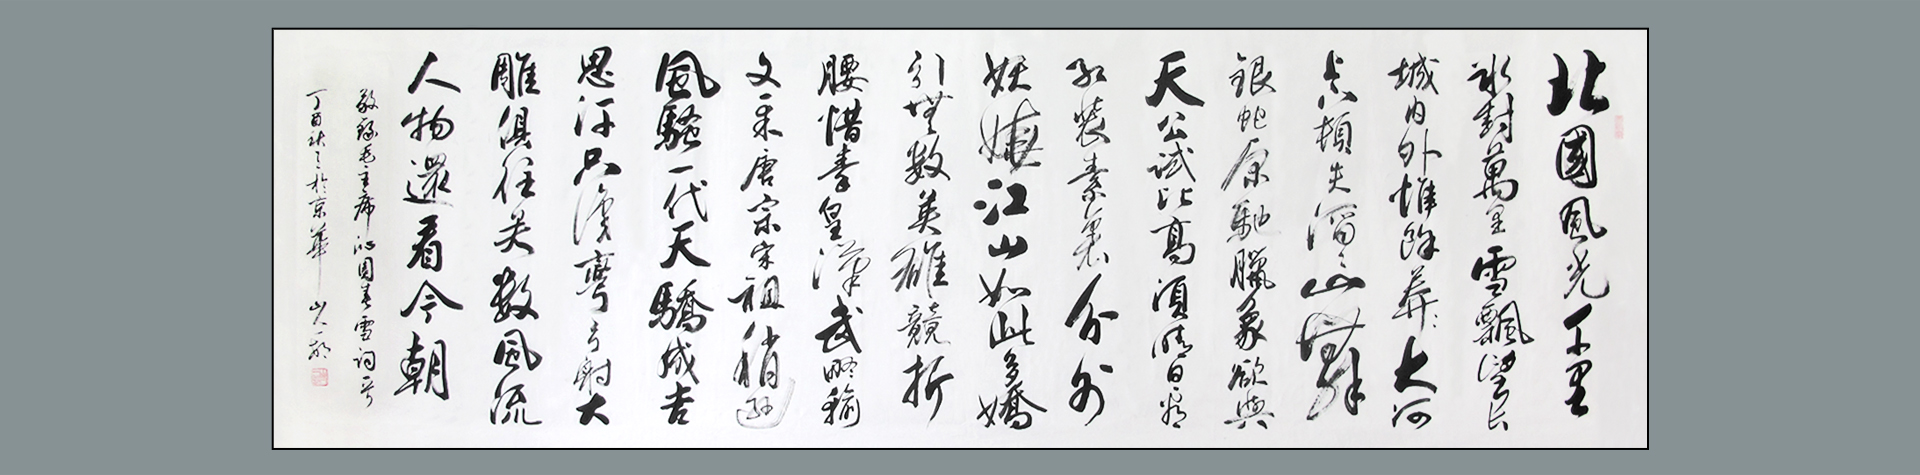 北國風光千里
冰封萬里雪飄望長
城内外惟餘莽〻大河
上下頓失滔〻山舞
銀蛇原馳臘象欲與
天公試比高須晴日看
紅裝素裹分外
妖嬈江山如此多嬌
引無数英雄競折
腰惜秦皇漢武略輸
文采唐宗宋祖稍遜
風騷一代天驕成吉
思汗只識彎弓射大
雕俱往矣数風流
人物還看今朝
敬錄毛主席沁園春雪詞
丁酉秋之於京華